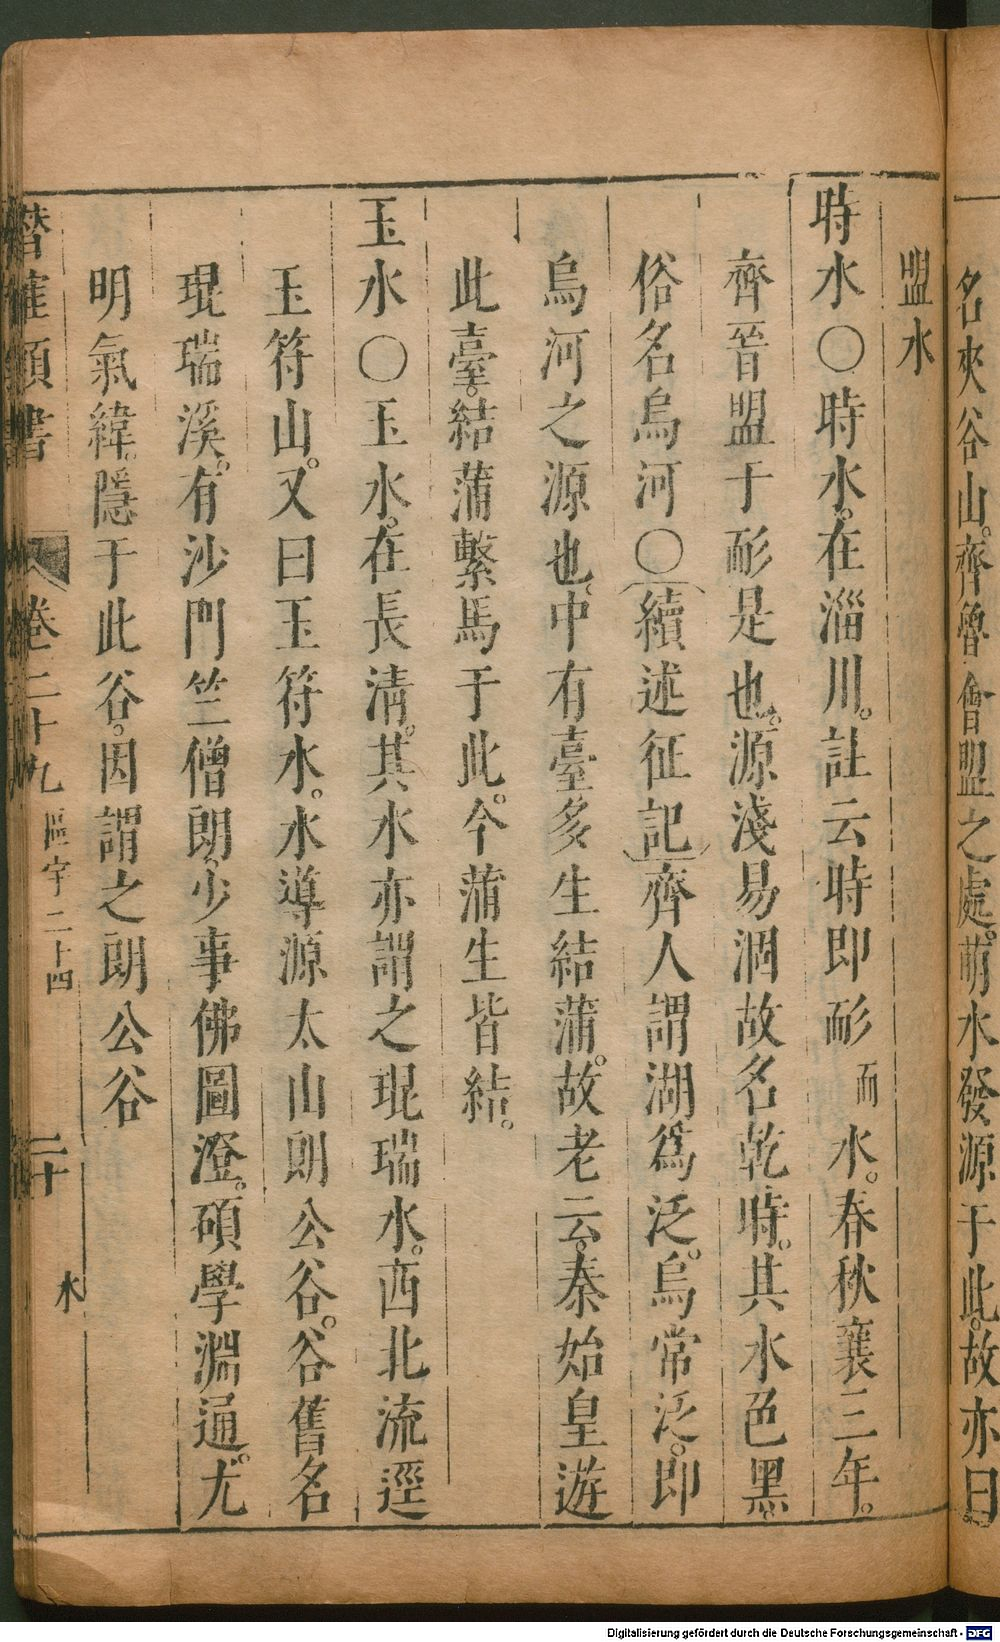 名夾谷山。齊魯會盟之處。萌水發源于此。故亦曰
盟水
時水○時水。在淄川。註云時即耏而水。春秋襄三年。
齊晉盟于耏是也。源淺易涸故名乾時。其水色黑。
俗名烏河○續述征記齊人謂湖爲泛。烏常泛。即
烏河之源也。中有臺多生結蒲。故老云。秦始皇遊
此臺。結蒲繫馬于此。今蒲生皆結。
玉水○玉水。在長清。其水亦謂之琨瑞水。西北流逕
玉符山。又曰玉符水。水導源太山朗公谷。谷舊名
琨瑞溪。有沙門竺僧朗。少事佛圖澄。碩學淵通。尤
明氣緯。隱于此谷。因謂之朗公谷
潛確類書 卷二十九 區宇二十四 二十 水
Digitalisierung gefördert durch die Deutsche Forschungsgemeinschaft - DFG